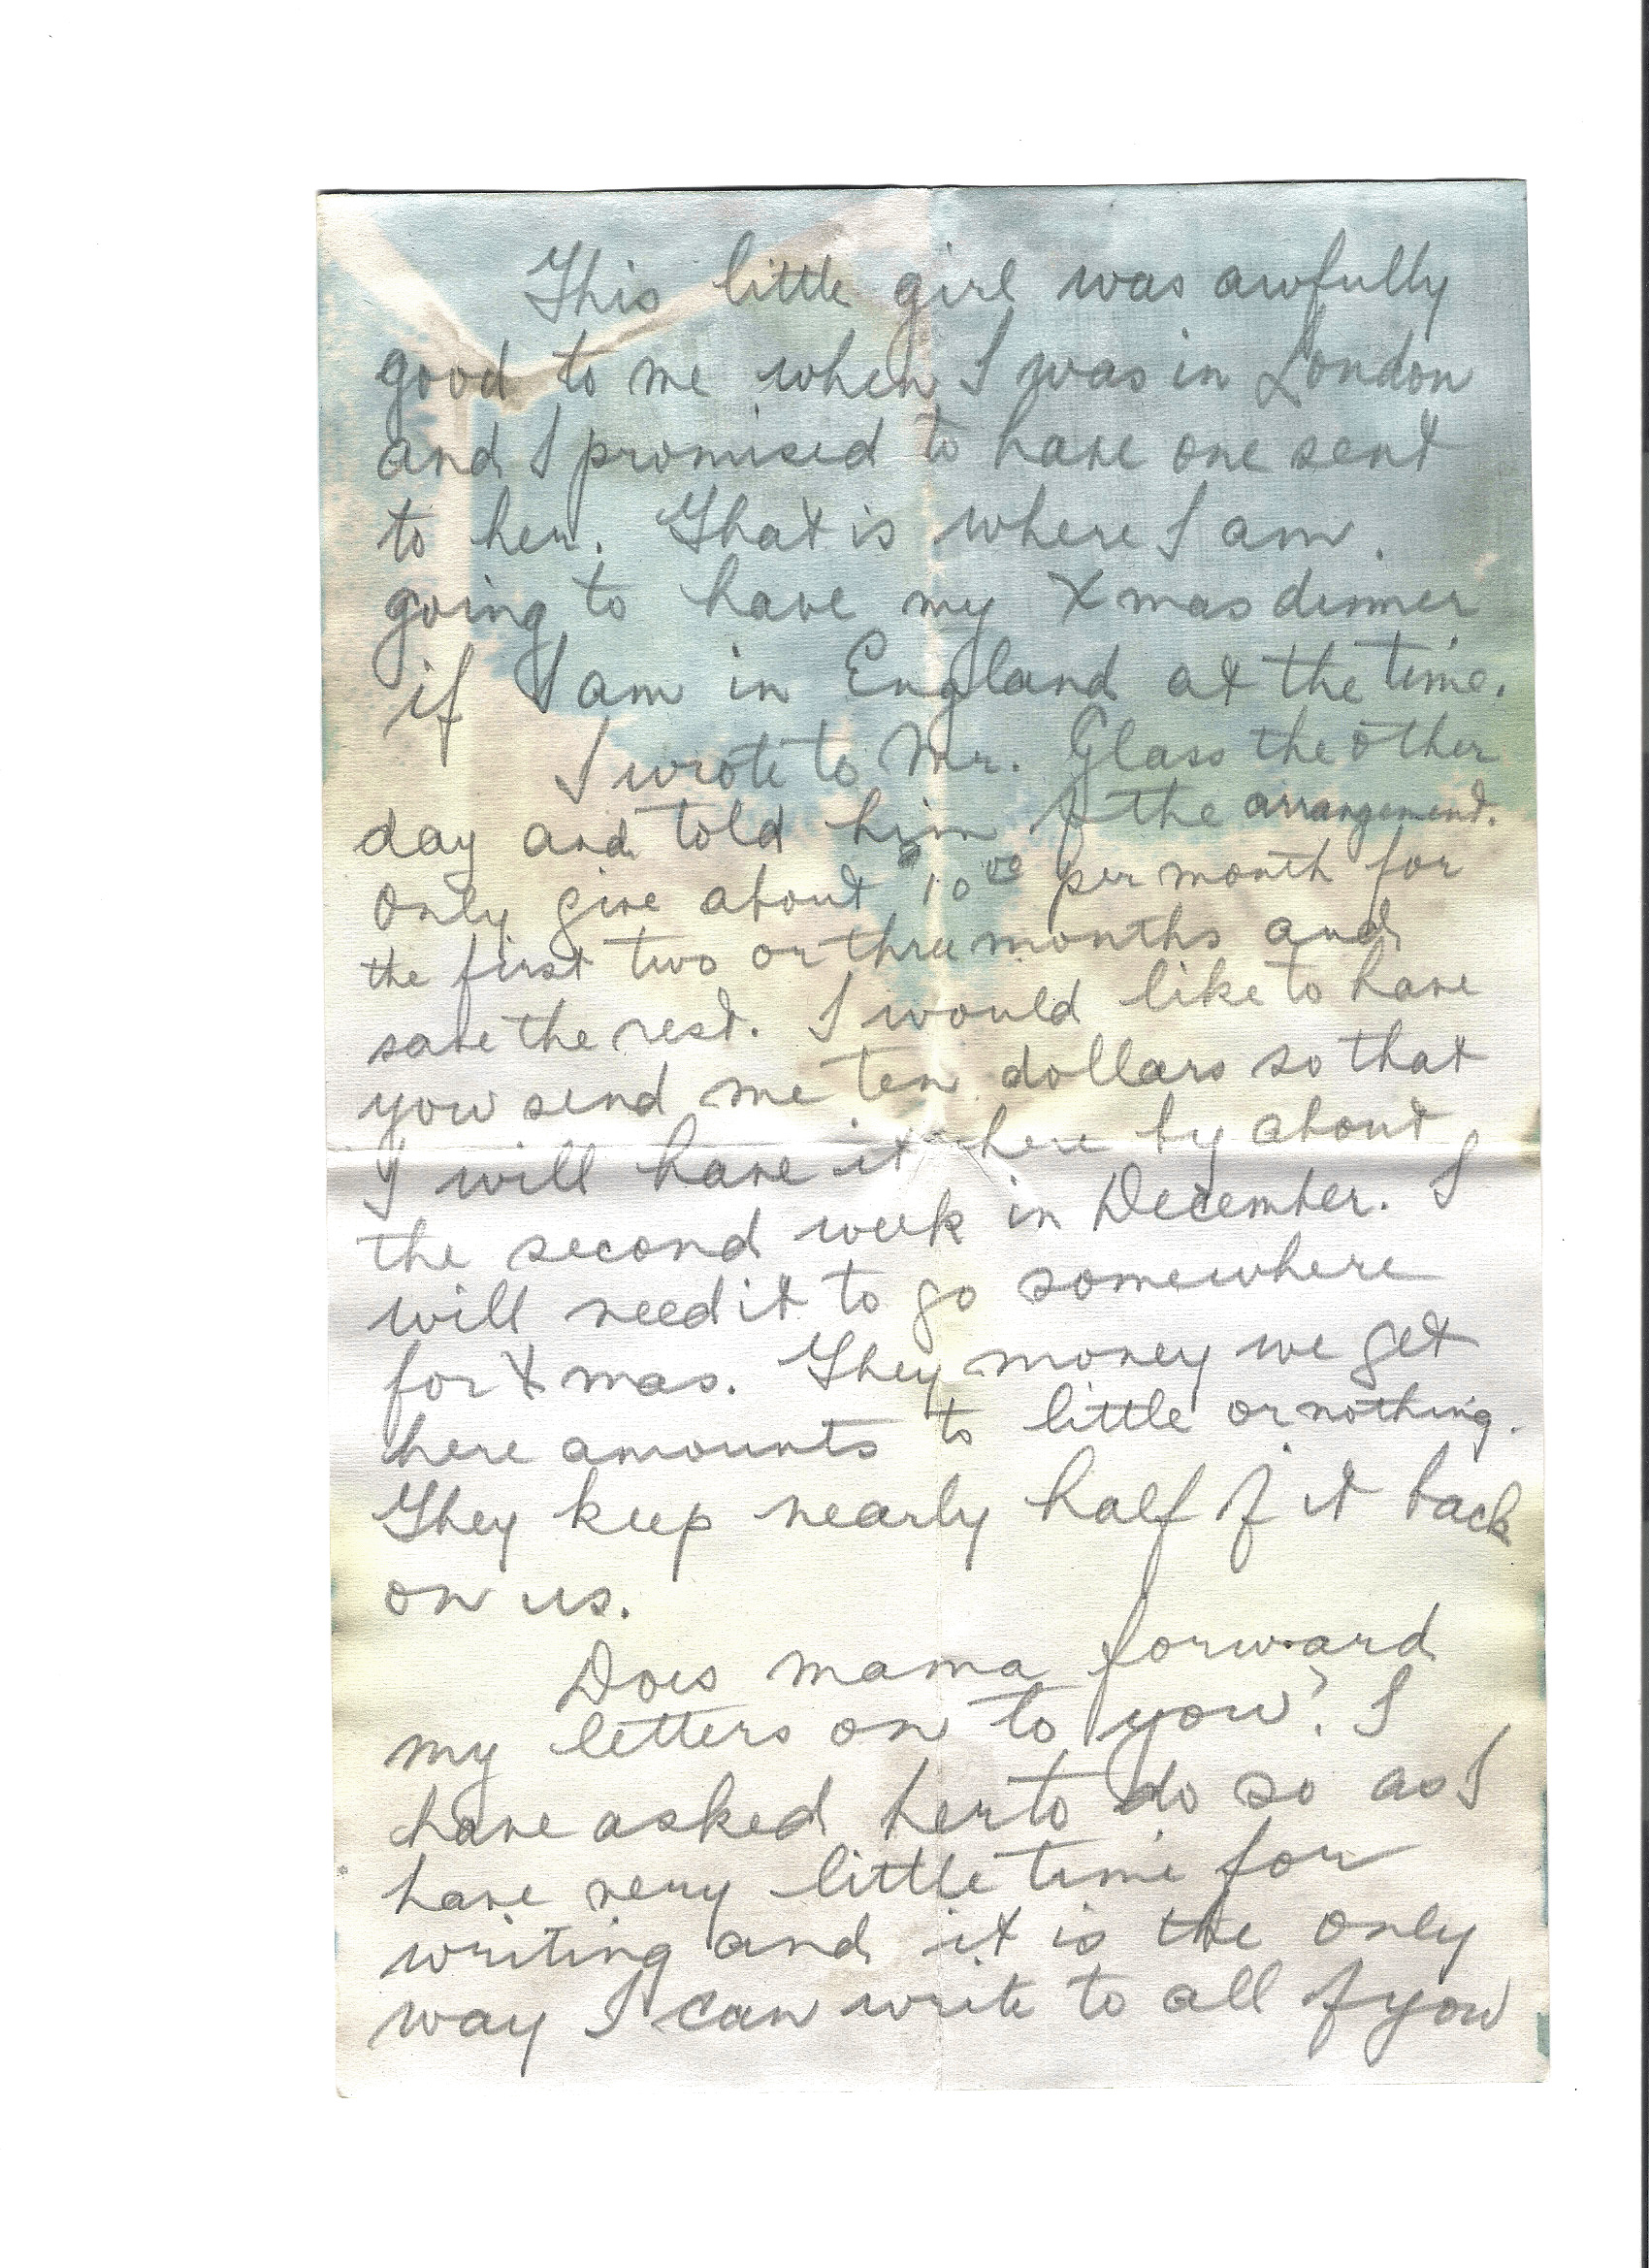 This little girl was awfully
good to me when I was in London
and I promised to have one sent
to her. That is where I am.
going to have my Xmas dinner
if I am in England at the time.
I wrote to Mr. Glass the other
day and told him of the arrangement.
Only give about 10⁰⁰ per month for
the first two or three months and
save the rest. I would like to have
you send me ten dollars so that
I will have it here by about
the second week in December. I
will need it to go somewhere
for Xmas. They money we get
here amounts to little or nothing.
They keep nearly half of it back
on us.
Does mama forward
my letters on to you? I
have asked her to do so as I
have very little time for
writing and it is the only
way I can write to all of you